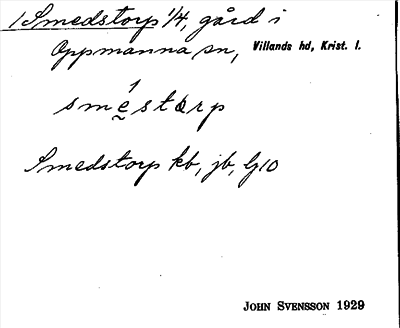 1 Smedstorp 1/4, gård i
Oppmanna sn, Villands hd, Krist. l.
smestorp
Smedstorp kb, jb, Gj10
JOHN SVENSSON 1929